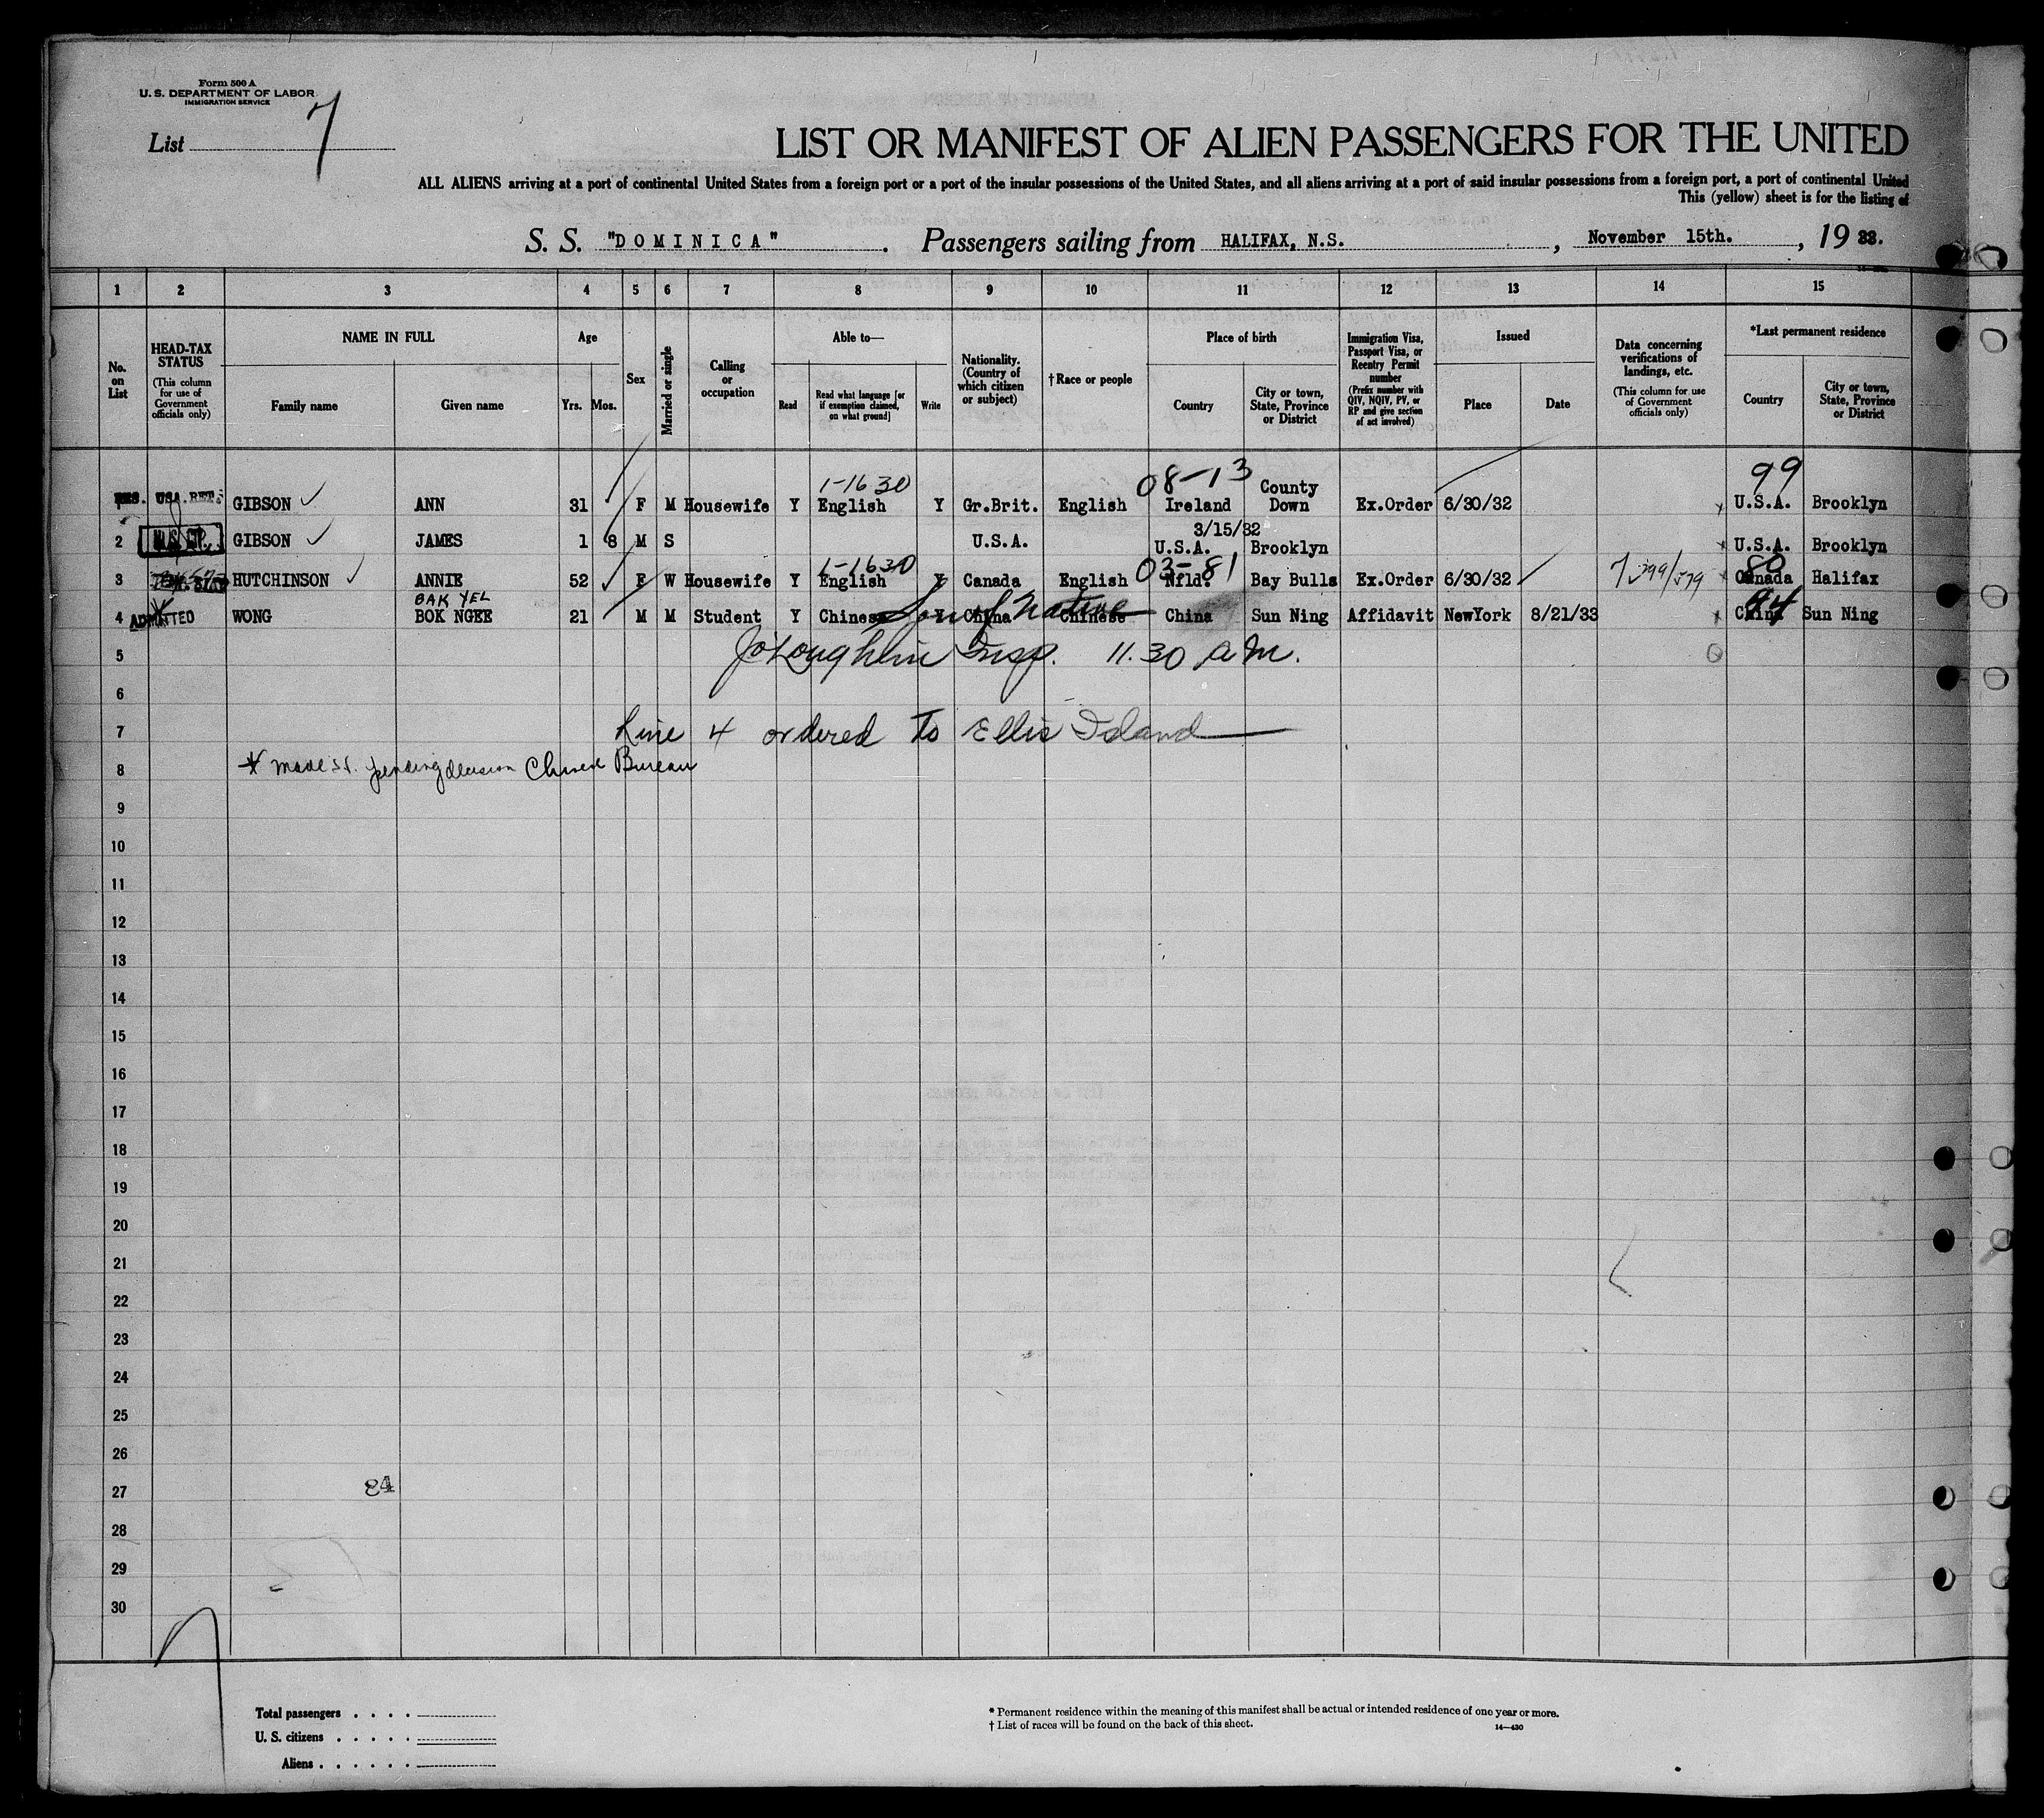 Form 500 A
U. S. DEPARTMENT OF LABOR
IMMIGRATION SERVICE
List 7
LIST OR MANIFEST OF ALIEN PASSENGERS FOR THE UNITED
ALL ALIENS arriving at a port of continental United States from a foreign port or a port of the insular possessions of the United States, and all aliens arriving at a port of said insular possessions from a foreign port, a port of continental United
This (yellow) sheet is for the listing of
S. S. "DOMINICA". Passengers sailing from HALIFAX, N.S., November 15th., 1933.
1 2 3 4 5 6 7 8 9 10 11 12 13 14 15
No. on List
HEAD-TAX STATUS (This column for use of Government officials only)
NAME IN FULL Family name Given name
Age Yrs. Mos.
Sex
Married or single
Calling or occupation
Able to— Read Read what language [or if exemption claimed, on what ground] Write
Nationality. (Country of which citizen or subject)
† Race or people
Place of birth Country City or town, State, Province or District
Immigration Visa, Passport Visa, or Reentry Permit number (Prefix number with QIV, NQIV, PV, or RP and give section of act involved)
Issued Place Date
Data concerning verifications of landings, etc. (This column for use of Government officials only)
*Last permanent residence Country City or town, State, Province or District
1-1630 08-13 99
1 USA. GIBSON ANN 31 F M Housewife Y English Y Gr.Brit. English Ireland County Down Ex.Order 6/30/32 U.S.A. Brooklyn
3/15/32
2 GIBSON JAMES 1 8 M S U.S.A. U.S.A. Brooklyn U.S.A. Brooklyn
1-1630 03-81 80
3 HUTCHINSON ANNIE 52 F W Housewife Y English Y Canada English Nfld. Bay Bulls Ex.Order 6/30/32 Canada Halifax
BAK YEL Son of Native 94
4 ADMITTED WONG BOK NGEE 21 M M Student Y Chinese Y China Chinese China Sun Ning Affidavit NewYork 8/21/33 China Sun Ning
5 J O'Loughlin Insp. 11.30 a m.
6
7 Line 4 ordered to Ellis Island
8 * made S.I. pending decision Chinese Bureau
9
10
11
12
13
14
15
16
17
18
19
20
21
22
23
24
25
26
27 84
28
29
30
Total passengers . . . .
U. S. citizens . . . . .
Aliens . . . . . .
* Permanent residence within the meaning of this manifest shall be actual or intended residence of one year or more.
† List of races will be found on the back of this sheet.
14—430